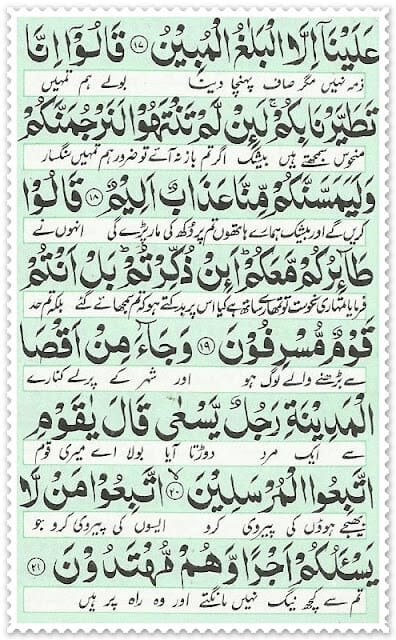 عَلَيْنَآ اِلَّا الْبَلٰغُ الْمُبِيْنُ ﴿۱۷﴾ قَالُوْٓا اِنَّا
ذمہ نہیں مگر صاف پہنچا دینا بولے ہم تمہیں
تَطَيَّرْنَا بِكُمْ ۚ لَئِنْ لَّمْ تَنْتَهُوْا لَنَرْجُمَنَّكُمْ
منحوس سمجھتے ہیں بیشک اگر تم باز نہ آئے تو ضرور ہم تمہیں سنگسار
وَلَيَمَسَّنَّكُمْ مِّنَّا عَذَابٌ اَلِيْمٌ ﴿۱۸﴾ قَالُوْا
کریں گے اور بیشک ہمارے ہاتھوں تم پر دُکھ کی مار پڑے گی انہوں نے
طَآئِرُكُمْ مَّعَكُمْ ؕ اَئِنْ ذُكِّرْتُمْ ؕ بَلْ اَنْتُمْ
فرمایا تمہاری نحوست تو تمہارے ساتھ ہے کیا اس پر بدکتے ہو کہ تم سمجھائے گئے بلکہ تم حد
قَوْمٌ مُّسْرِفُوْنَ ﴿۱۹﴾ وَجَآءَ مِنْ اَقْصَا
سے بڑھنے والے لوگ ہو اور شہر کے پرلے کنارے
الْمَدِيْنَةِ رَجُلٌ يَّسْعٰى قَالَ يٰقَوْمِ
سے ایک مرد دوڑتا آیا بولا اے میری قوم
اتَّبِعُوا الْمُرْسَلِيْنَ ﴿۲۰﴾ۙ اتَّبِعُوْا مَنْ لَّا
بھیجے ہوؤں کی پیروی کرو ایسوں کی پیروی کرو جو
يَسْـَٔلُكُمْ اَجْرًا وَّهُمْ مُّهْتَدُوْنَ ﴿۲۱﴾
تم سے کچھ نیگ نہیں مانگتے اور وہ راہ پر ہیں